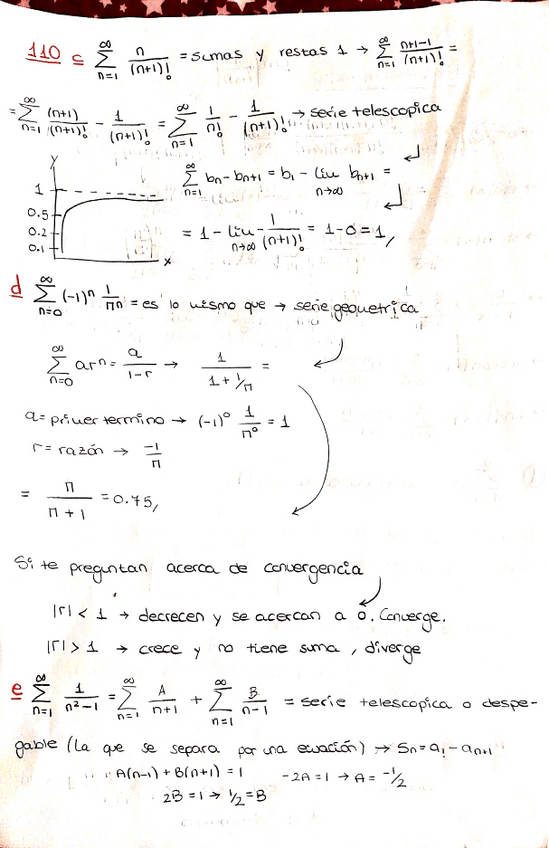 110 c ∑_{n=1}^{∞} n/(n+1)! = sumas y restas 1 → ∑_{n=1}^{∞} (n+1-1)/(n+1)! =
= ∑_{n=1}^{∞} (n+1)/(n+1)! - 1/(n+1)! = ∑_{n=1}^{∞} 1/n! - 1/(n+1)! → serie telescopica
∑_{n=1}^{∞} bn - bn+1 = b1 - lim_{n→∞} bn+1 =
= 1 - lim_{n→∞} - 1/(n+1)! = 1-0 = 1,
y
1
0.5
0.2
0.1
x
d ∑_{n=0}^{∞} (-1)^n 1/π^n = es lo mismo que → serie geometrica
∑_{n=0}^{∞} ar^n = a/(1-r) → 1/(1+1/π) =
a = primer termino → (-1)^0 1/π^0 = 1
r = razón → -1/π
= π/(π+1) = 0.75,
Si te preguntan acerca de convergencia
|r| < 1 → decrecen y se acercan a 0. Converge.
|r| > 1 → crece y no tiene suma, diverge
e ∑_{n=1}^{∞} 1/(n²-1) = ∑_{n=1}^{∞} A/(n+1) + ∑_{n=1}^{∞} B/(n-1) = serie telescopica o despe-
gable (La que se separa por una ecuación) → Sn = a1 - an+1
A(n-1) + B(n+1) = 1 -2A = 1 → A = -1/2
2B = 1 → 1/2 = B